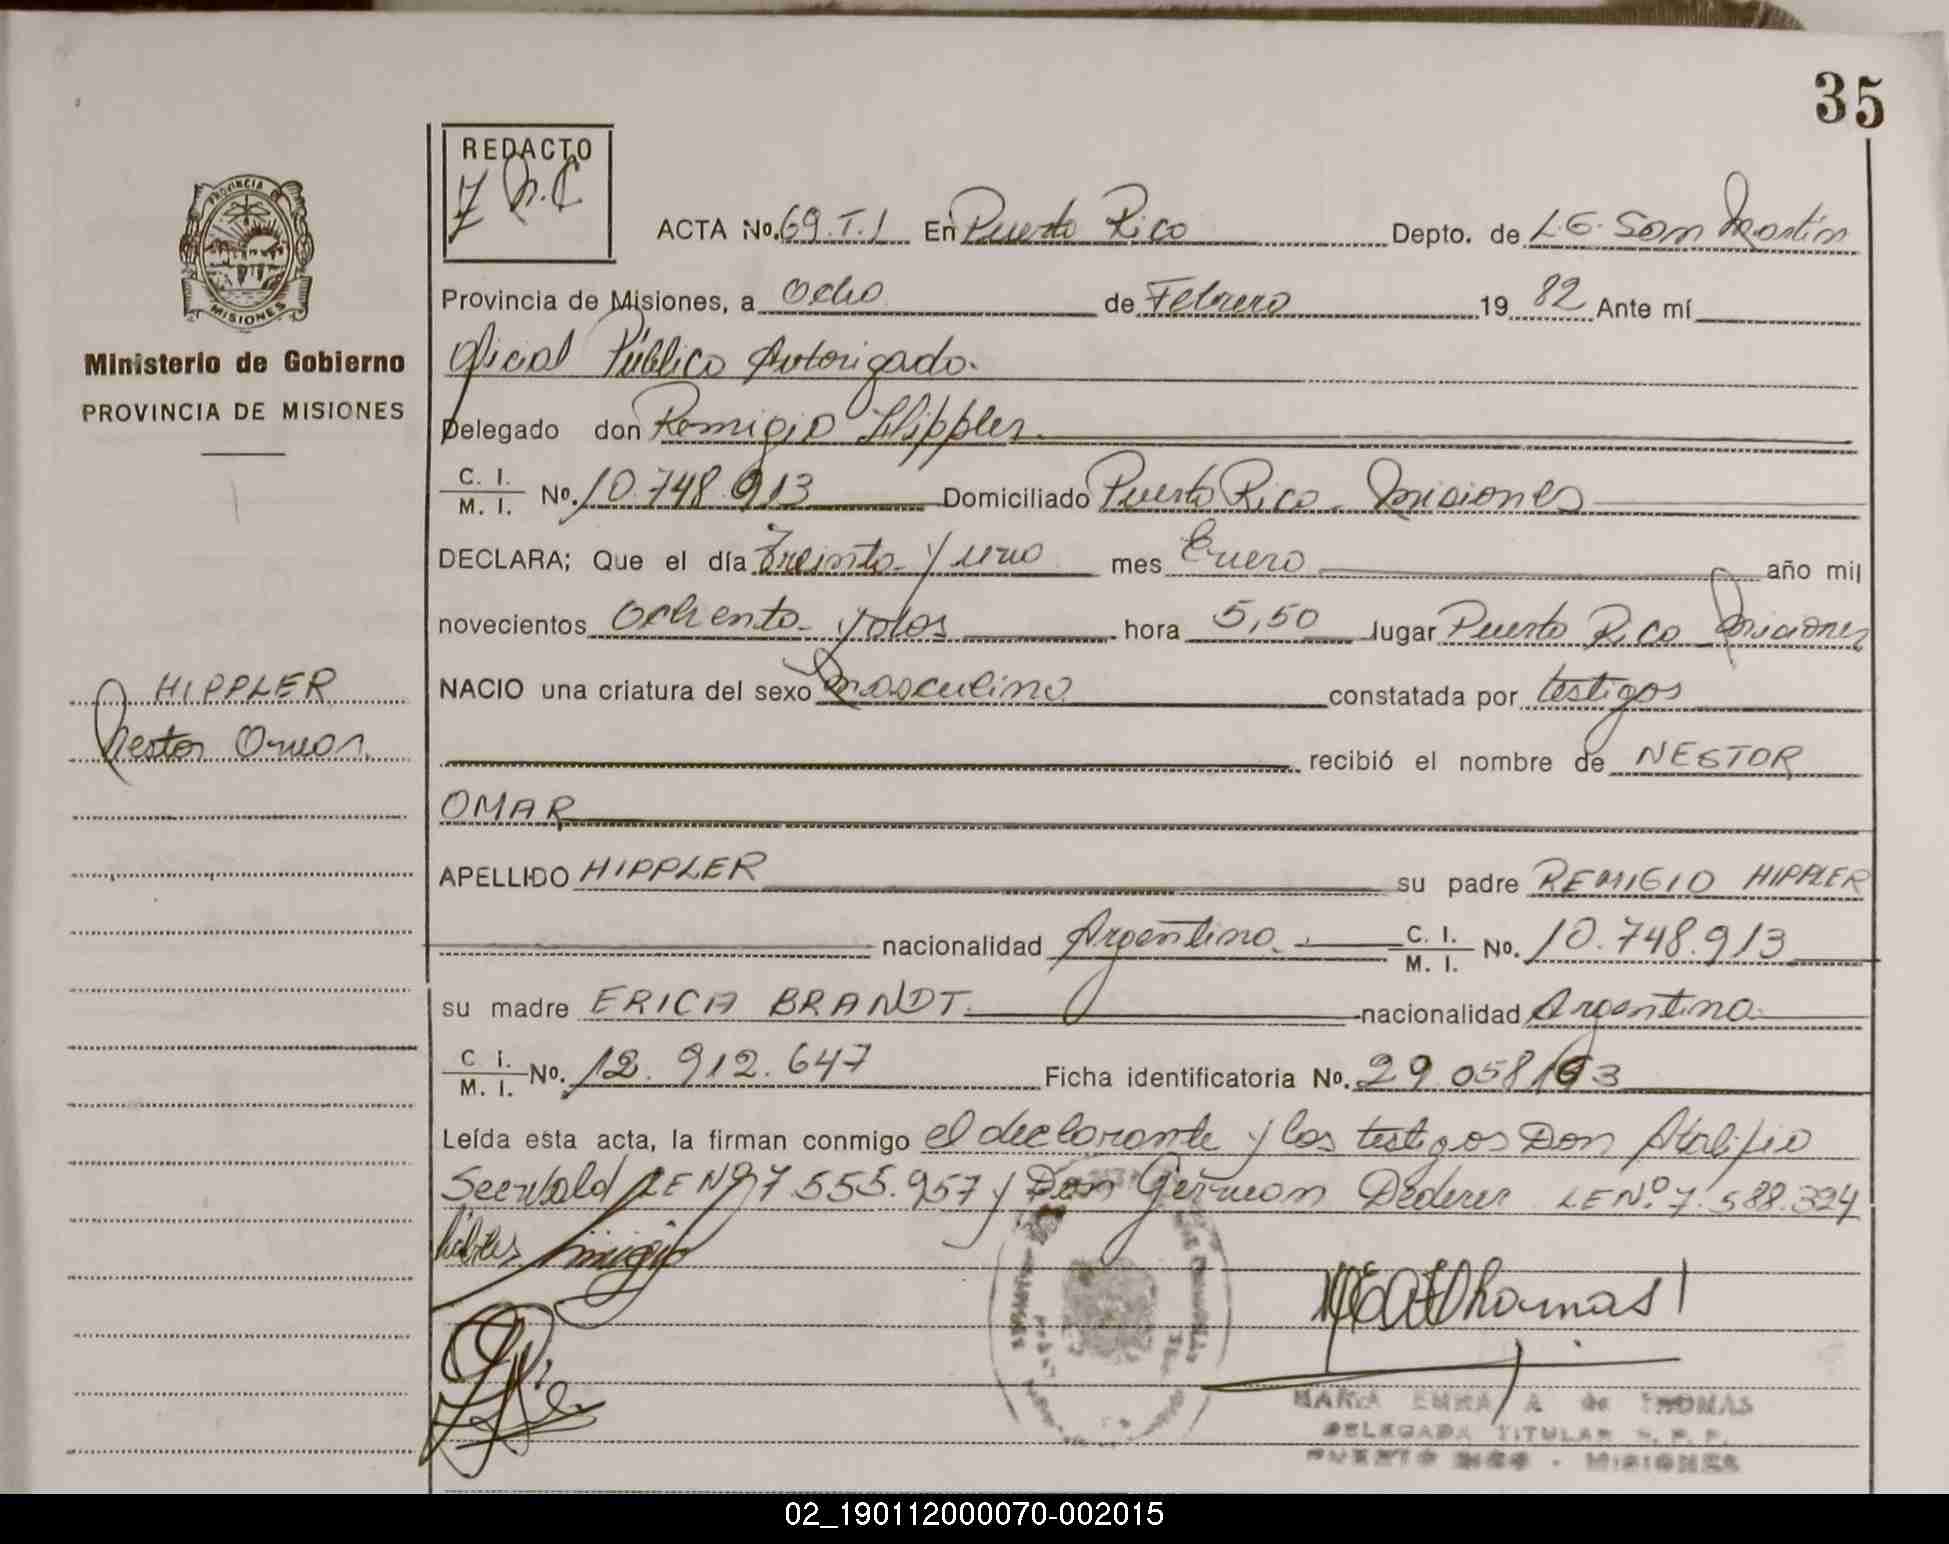 35
REDACTO
PROVINCIA
MISIONES
ACTA No. 69.T.I En Puerto Rico Depto. de L.G. San Martín
Provincia de Misiones, a Ocho de Febrero 19 82 Ante mí
Oficial Público Autorizado.
Ministerio de Gobierno
PROVINCIA DE MISIONES
Delegado don Remigio Hippler
C. I.
M. I. No. 10.748.913 Domiciliado Puerto Rico - Misiones
DECLARA; Que el día Treinta y uno mes Enero año mil
novecientos Ochenta y dos hora 5,50 lugar Puerto Rico Misiones
HIPPLER
Nestor Omar.
NACIO una criatura del sexo Masculino constatada por testigos
recibió el nombre de NESTOR
OMAR
APELLIDO HIPPLER su padre REMIGIO HIPPLER
nacionalidad Argentino. C. I.
M. I. No. 10.748.913
su madre ERICA BRANDT nacionalidad Argentina.
C I.
M. I. No. 12.912.647 Ficha identificatoria No. 29 058 163
Leída esta acta, la firman conmigo el declarante y los testigos Don
Seewald LE Nº 7.555.957 y Don German Dederer LE Nº 7.588.324
hábiles
MARIA EMMA A de THOMAS
DELEGADA TITULAR R. P. P.
PUERTO RICO - MISIONES
02_190112000070-002015